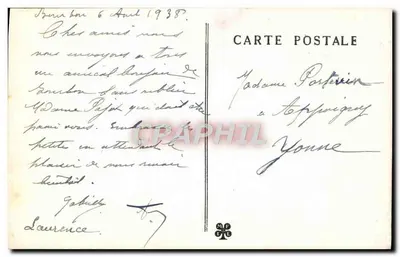 Bourbon 6 Août 1938.
Chers amis nous
vous envoyons a tous
un amical bonjour de
Bourbon sans oublier
Madame Pajot qui doit être
parmi vous. Embrassez
petite en attendant le
plaisir de vous revoir
bientôt.
Laurence
CARTE POSTALE
Madame
a Appoigny
Yonne
CPARAMA.COM